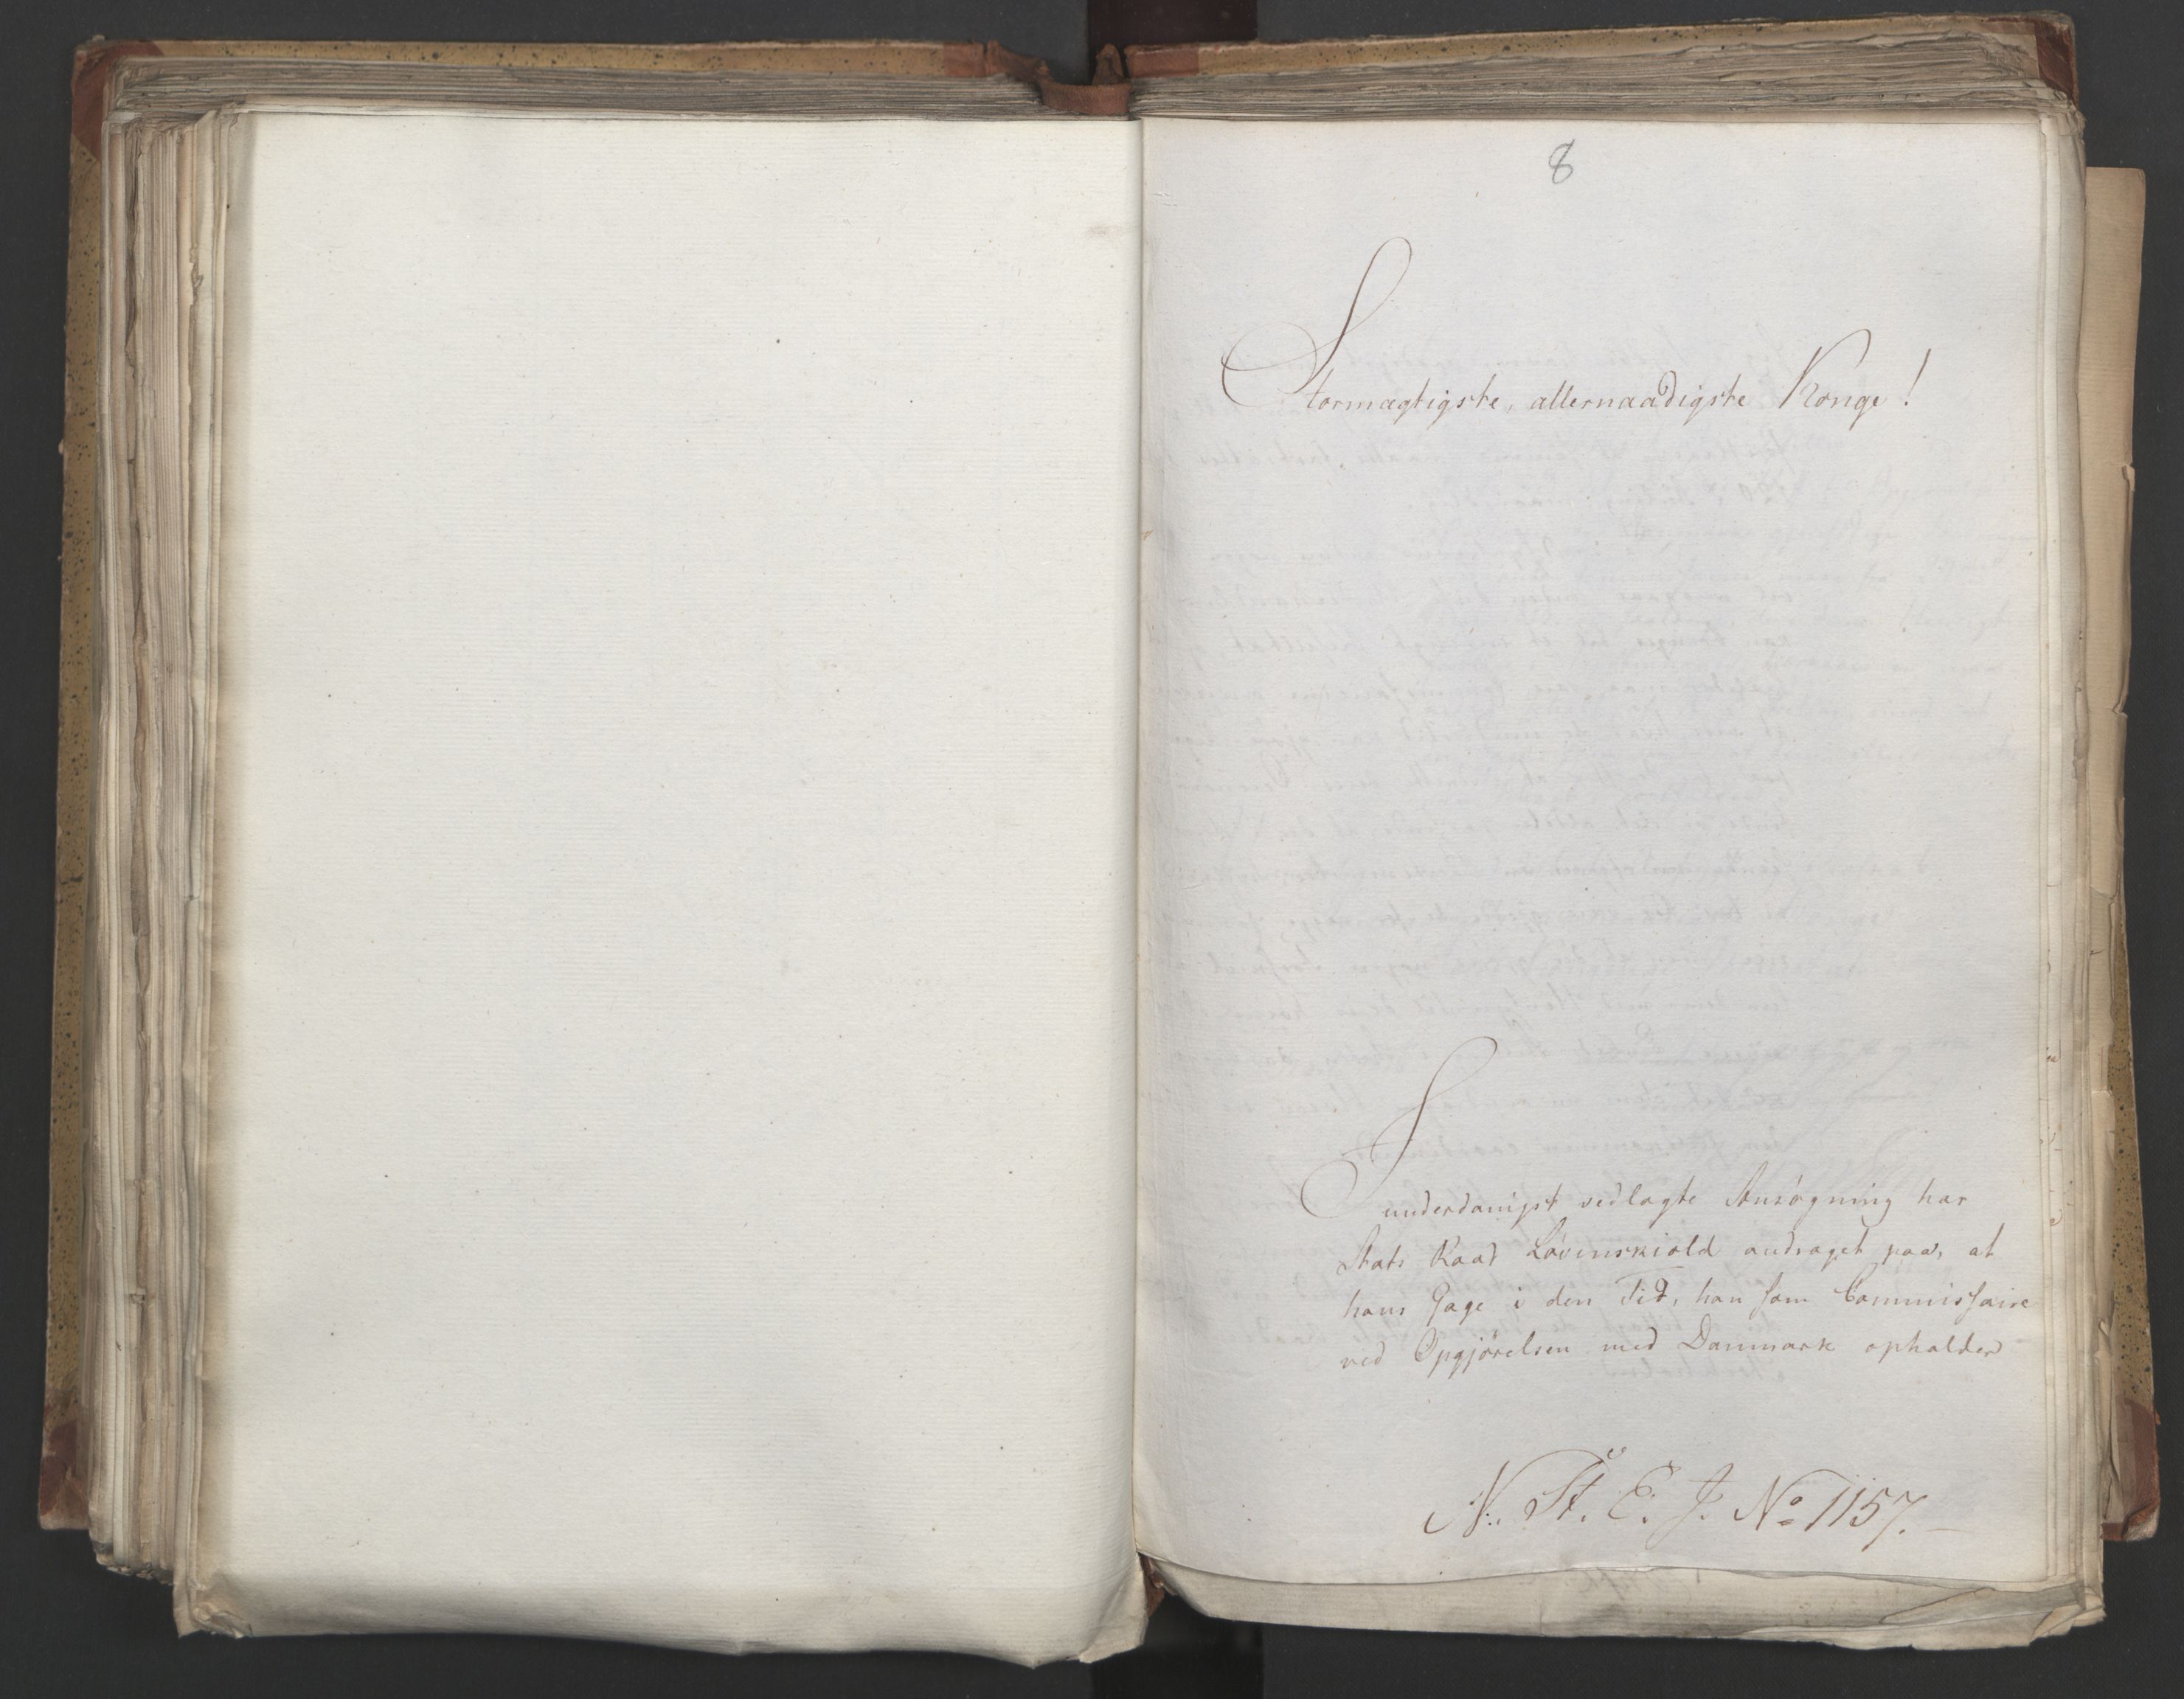 8
Stormægtigste, allernaadigste Konge!
I
underdanigst vedlagte Ansøgning har
Stats Raad Løvenskiold andraget paa, at
hans Gage i den Tid, han som Commissaire
ved Opgjørelsen med Danmark opholder
N. St. E. J. No 1157.